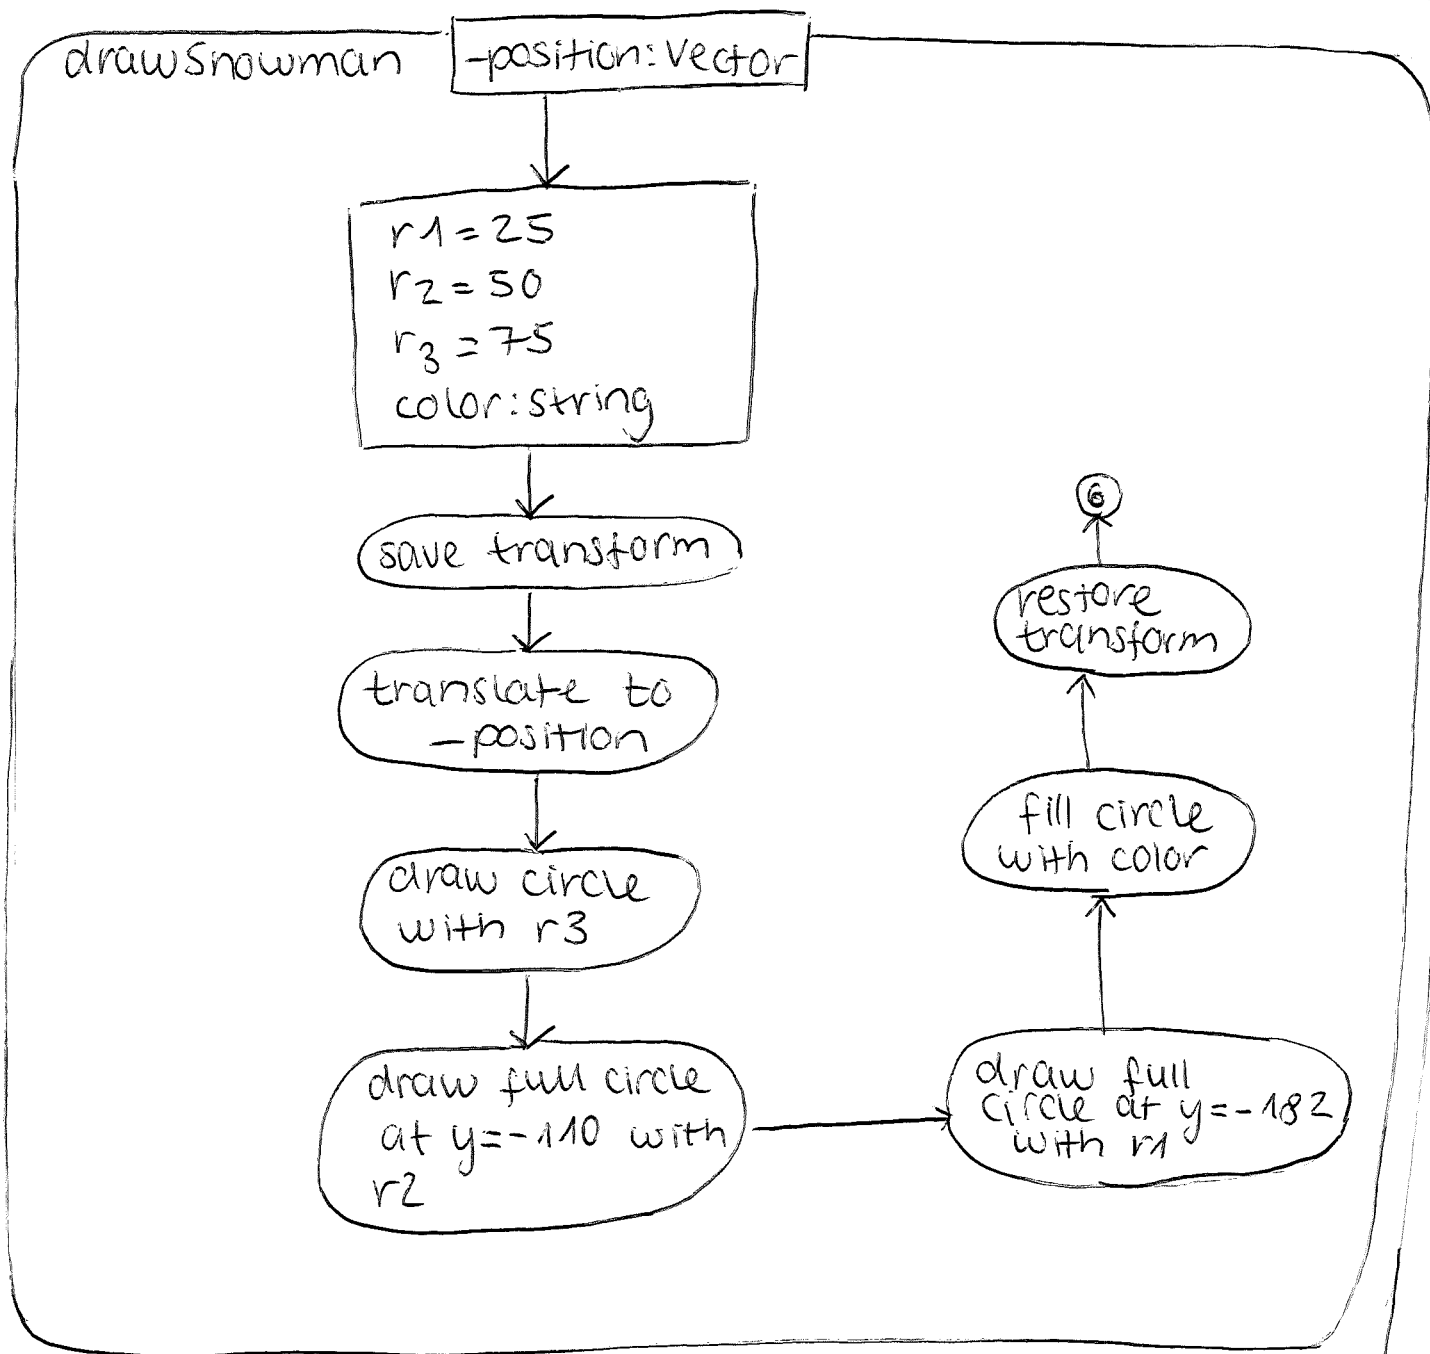 drawSnowman
-position: Vector
r1=25
r2=50
r3=75
color: string
save transform
translate to
-position
draw circle
with r3
draw full circle
at y=-110 with
r2
draw full
circle at y=-182
with r1
fill circle
with color
restore
transform